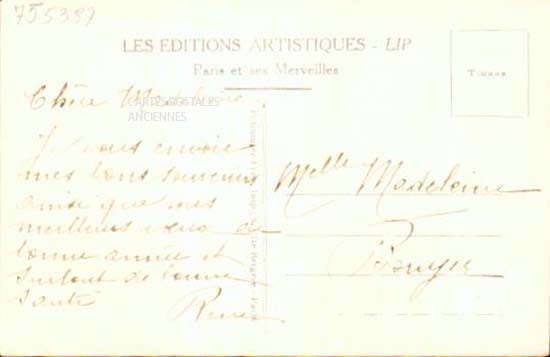 755387
LES EDITIONS ARTISTIQUES - LIP
Paris et ses Merveilles
TIMBRE
CARTES POSTALES
ANCIENNES
Chère Madeleine
Je vous envoie
mes bons souvenirs
ainsi que mes
meilleurs vœux de
bonne année et
surtout de bonne
santé
Melle Madeleine